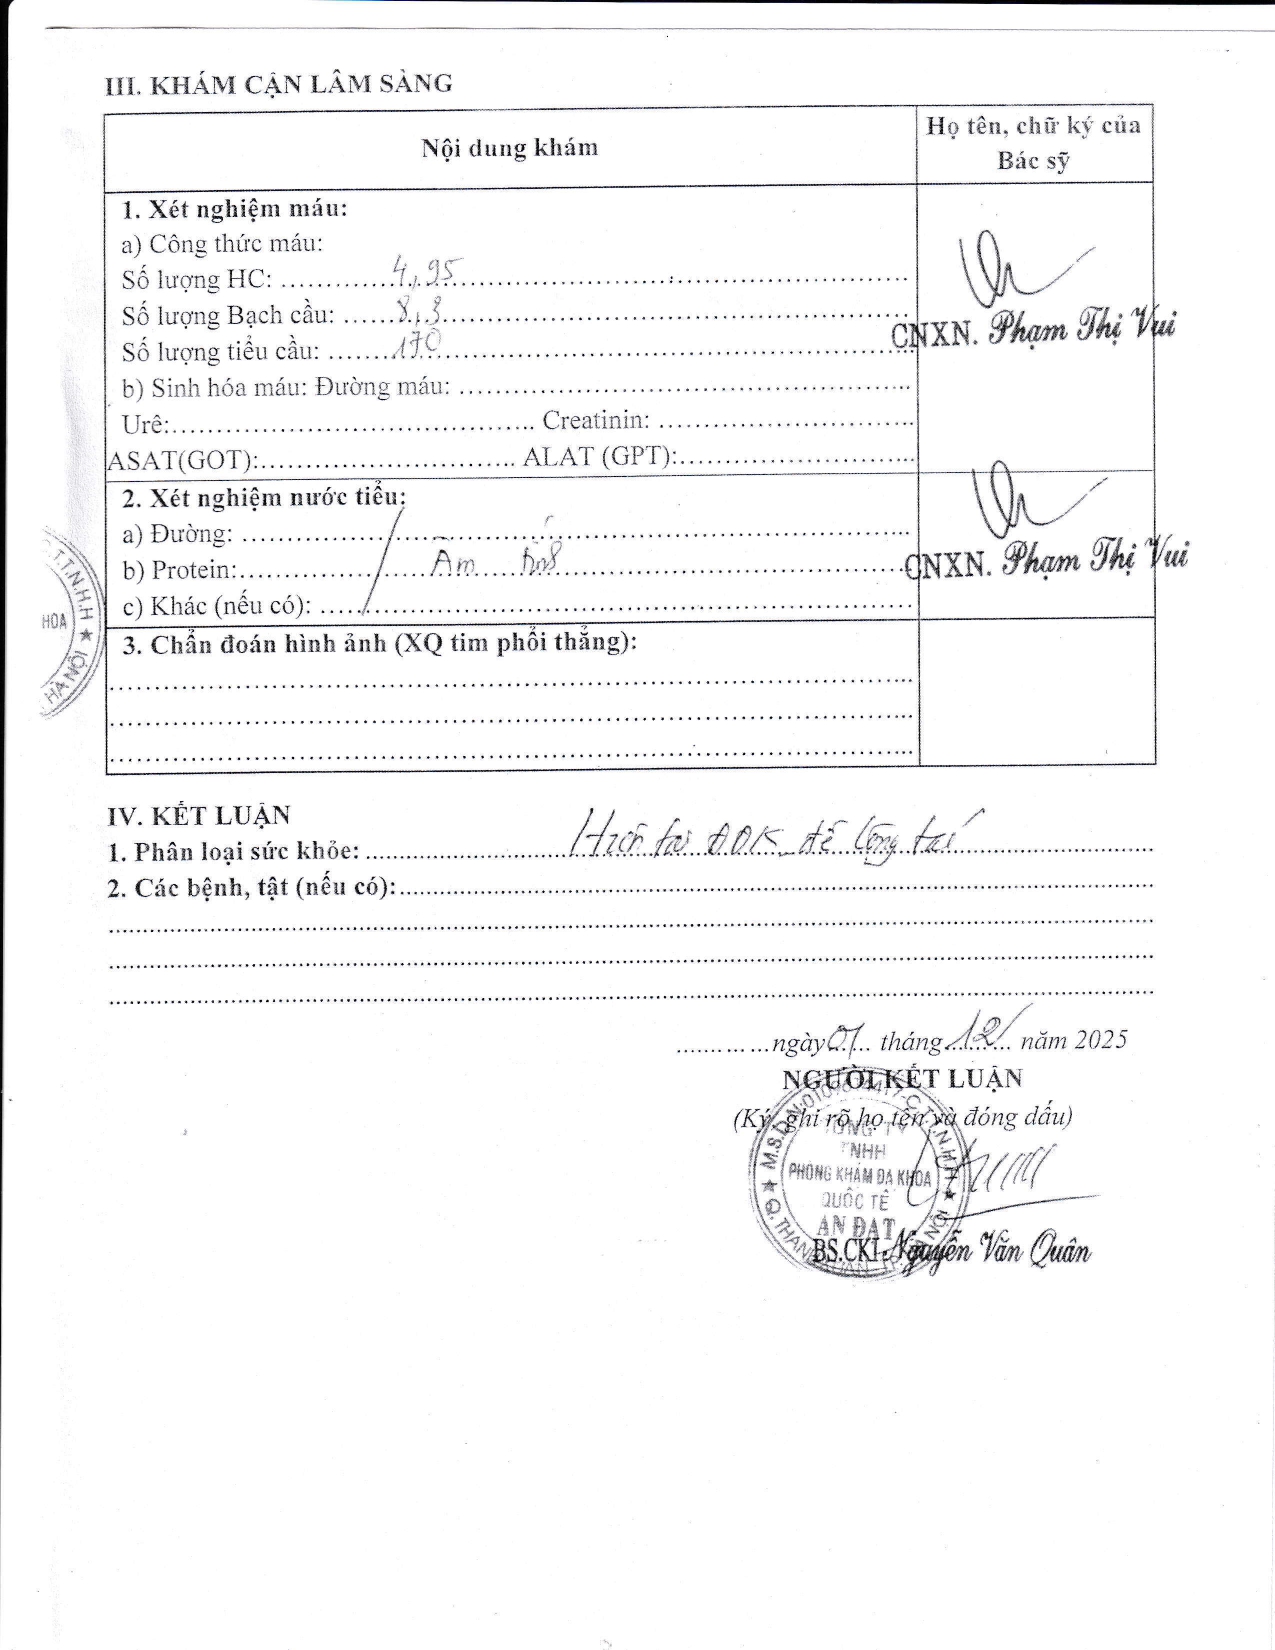 III. KHÁM CẬN LÂM SÀNG
Nội dung khám
Họ tên, chữ ký của
Bác sỹ
1. Xét nghiệm máu:
a) Công thức máu:
Số lượng HC: ............4,95..................................................
Số lượng Bạch cầu: ......8,3..................................................
Số lượng tiểu cầu: .......170..................................................
CNXN. Phạm Thị Vui
b) Sinh hóa máu: Đường máu: ..................................................
Urê:........................................ Creatinin: ............................
ASAT(GOT):............................ ALAT (GPT):..........................
2. Xét nghiệm nước tiểu:
a) Đường: ..................................................
b) Protein:.................Âm tính..................................................
CNXN. Phạm Thị Vui
c) Khác (nếu có): ..................................................
3. Chẩn đoán hình ảnh (XQ tim phổi thẳng):
T.T.N.H.H ★ HÀ NỘI
HOA
IV. KẾT LUẬN
1. Phân loại sức khỏe: ....................Hiện tại ĐĐK để công tác....................
2. Các bệnh, tật (nếu có):..................................................
............ngày 01 tháng 12 năm 2025
NGƯỜI KẾT LUẬN
(Ký, ghi rõ họ tên và đóng dấu)
TNHH
PHÒNG KHÁM ĐA KHOA
QUỐC TẾ
AN ĐẠT
BS.CKI. Nguyễn Văn Quân